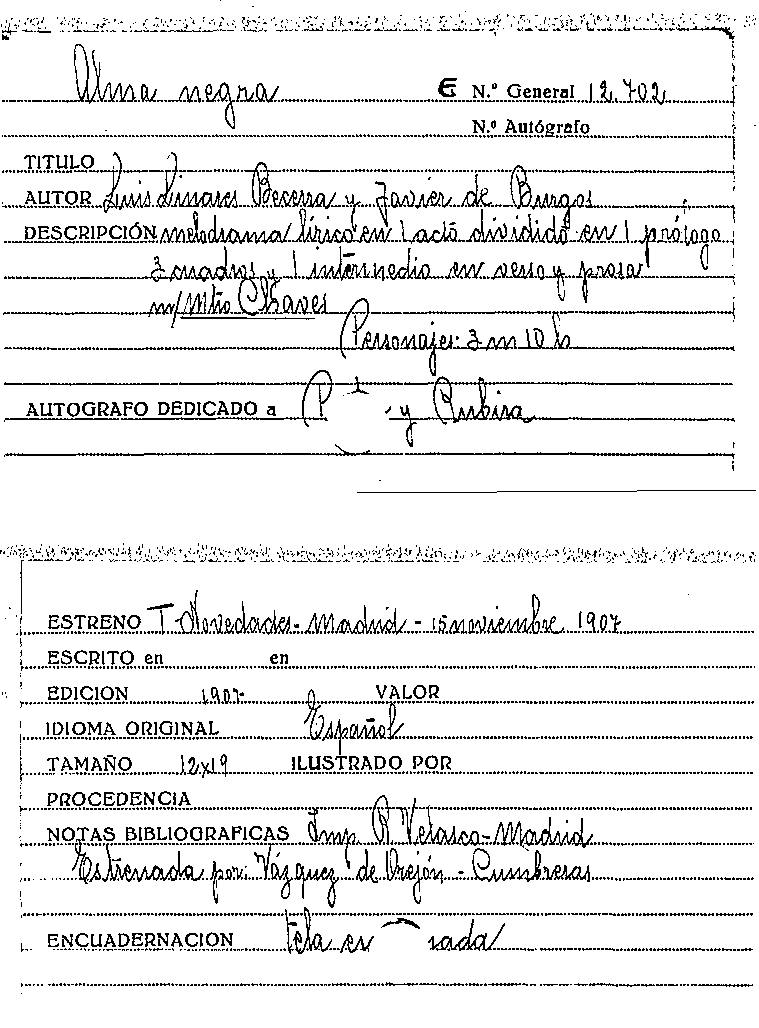 Alma negra
E N.º General 12.702
N.º Autógrafo
TITULO
AUTOR Luis Linares Becerra y Javier de Burgos
DESCRIPCIÓN melodrama lírico en 1 acto dividido en 1 prólogo
3 cuadros y 1 intermedio en verso y prosa
m/ Mtro Chaves
Personajes: 3 m 10 h
AUTOGRAFO DEDICADO a P y Rubira
ESTRENO T. Novedades - Madrid - 15 noviembre 1907
ESCRITO en en
EDICION 1907 VALOR
IDIOMA ORIGINAL Español
TAMAÑO 12x19 ILUSTRADO POR
PROCEDENCIA
NOTAS BIBLIOGRAFICAS Imp. R Velasco - Madrid
Estrenada por: Vázquez de Orejón - Cumbreras
ENCUADERNACION tela